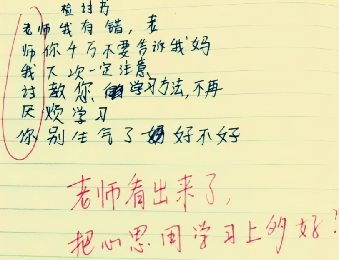 检讨书
老师我有错,老
师你千万不要告诉我妈
我下次一定注意
讨教您学习方法,不再
厌烦学习
你别生气了好不好
老师看出来了,
把心思用学习上多好?